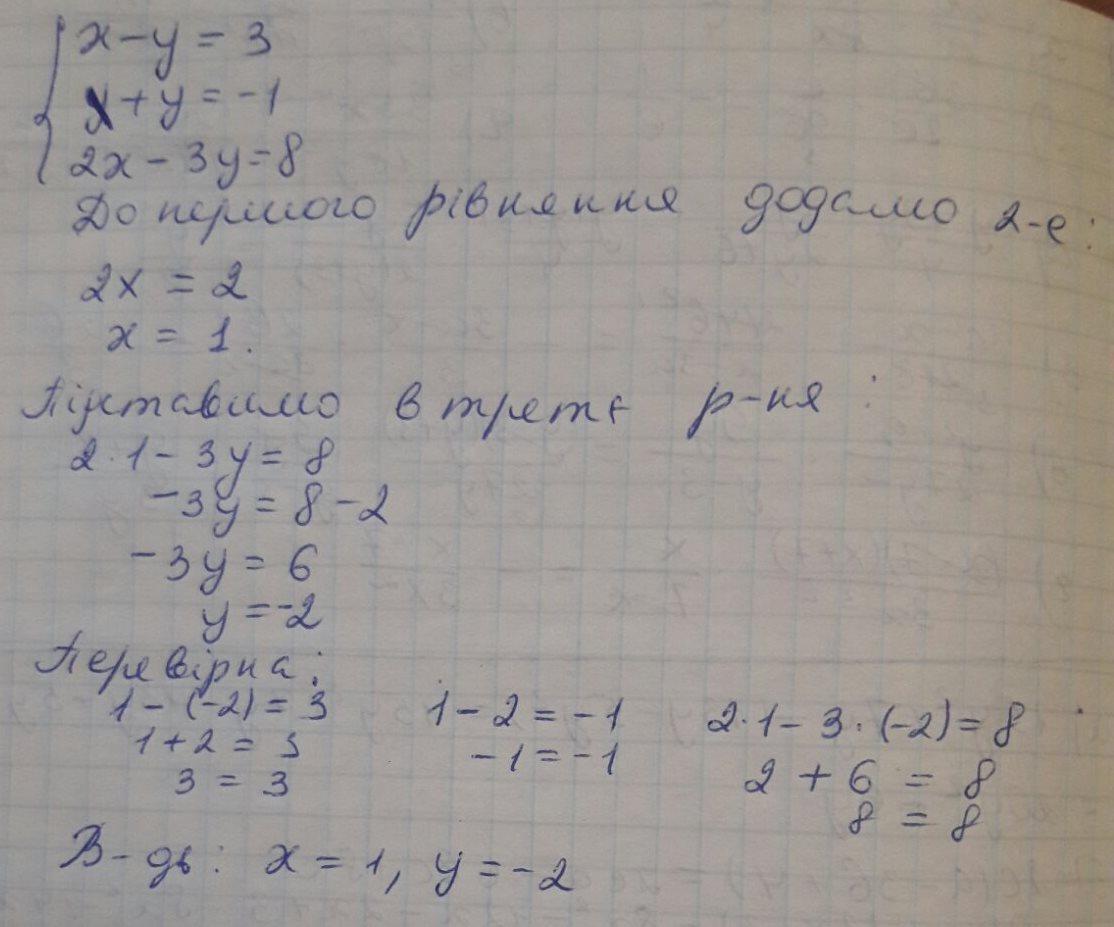 x - y = 3
x + y = -1
2x - 3y = 8
До першого рівняння додамо 2-е:
2x = 2
x = 1.
Підставимо в третє р-ня:
2·1 - 3y = 8
-3y = 8 - 2
-3y = 6
y = -2
Перевірка:
1 - (-2) = 3 1 - 2 = -1 2·1 - 3·(-2) = 8
1 + 2 = 3 -1 = -1 2 + 6 = 8
3 = 3 8 = 8
В-дь: x = 1, y = -2